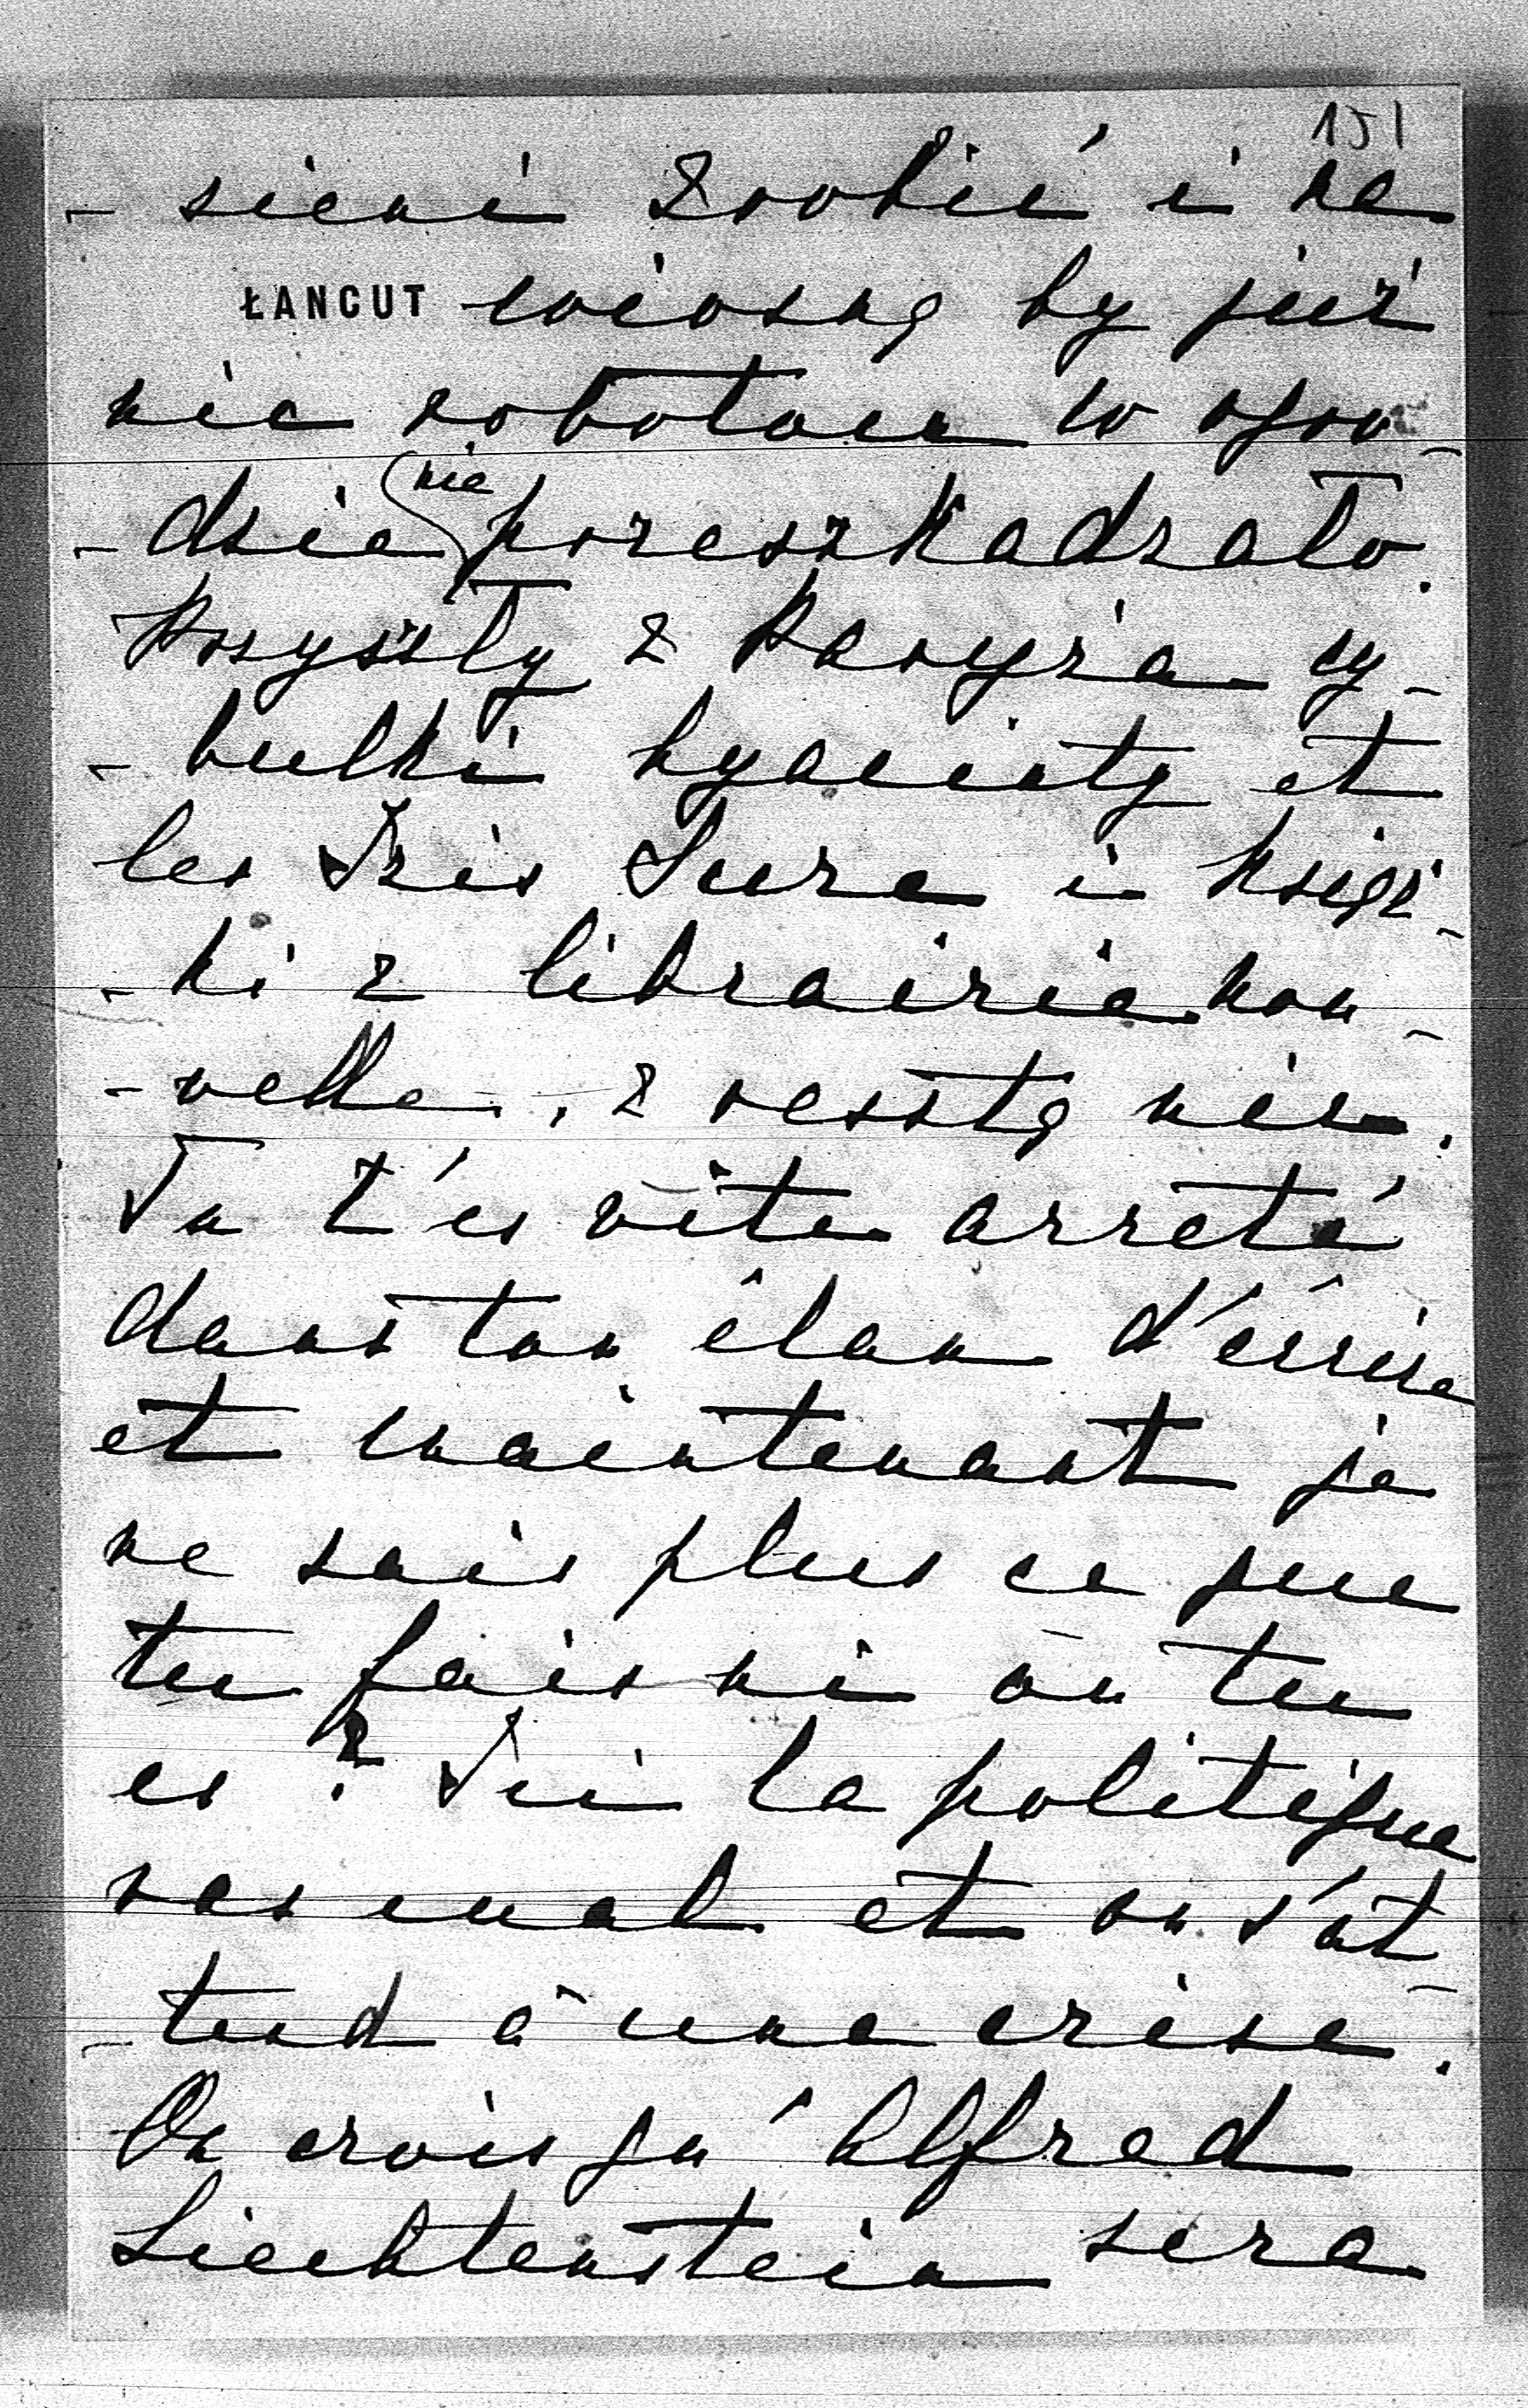 151
- sieni zrobić i na
ŁANCUT wiosnę by już
nic robotom w ogro-
- dzie nie przeszkadzało.
Przyszły z Paryża cy-
- bulki hyacinty et
les Iris Jura i książ-
- ki z librairie nou-
- velle, z resztą nic.
Tu t'es vite arreté
dans ton élan d'écrire
et maintenant je
ne sais plus ce que
tu fais ni où tu
es? Ici la politique
vas mal et on s'at-
- tend à une crise.
On crois qu'Alfred
Liechtenstein sera